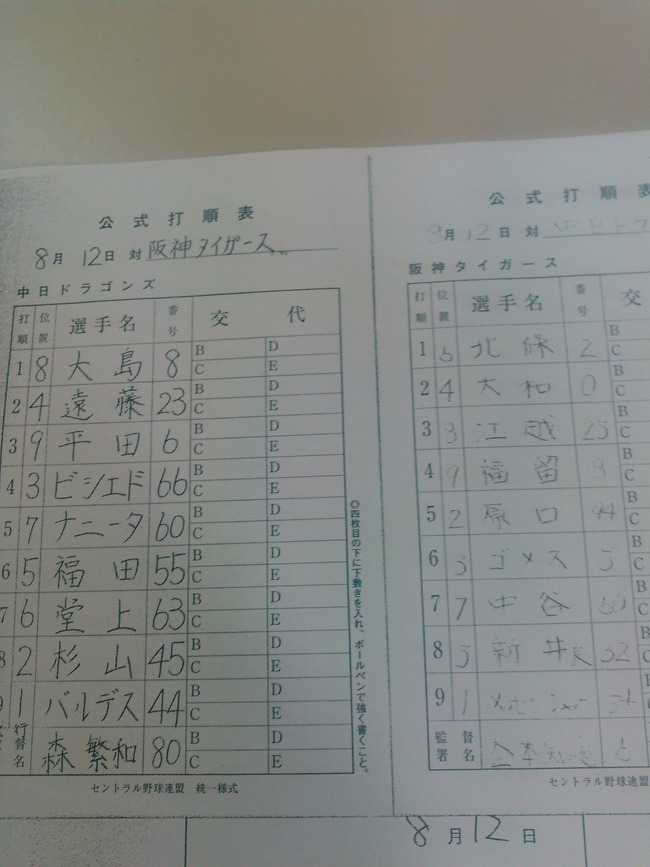 公式打順表
8月 12日 対 阪神タイガース
中日ドラゴンズ
打順 位置 選手名 番号 交 代
1 8 大島 8 B C D E
2 4 遠藤 23 B C D E
3 9 平田 6 B C D E
4 3 ビシエド 66 B C D E
5 7 ナニータ 60 B C D E
6 5 福田 55 B C D E
7 6 堂上 63 B C D E
8 2 杉山 45 B C D E
9 1 バルデス 44 B C D E
森繁和 80 B C D E
セントラル野球連盟 統一様式
◎四枚目の下に下敷きを入れ、ボールペンで強く書くこと。
公式打順表
8月 12日 対
阪神タイガース
打順 位置 選手名 番号 交
1 北條 2 B C
2 4 大和 0 B C
3 8 江越 25 B C
4 9 福留 8 B C
5 2 原口 94 B C
6 3 ゴメス 5 B C
7 7 中谷 60 B C
8 5 新井良 32 B C
9 1 54 B C
監督署名 6 B C
セントラル野球連盟
8月12日